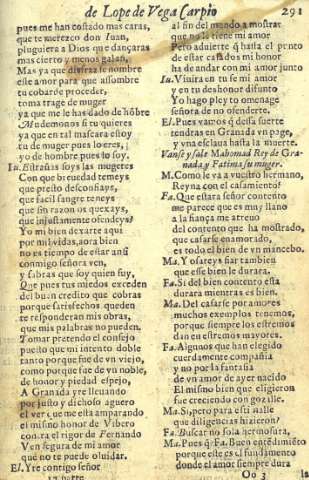 de Lope de Vega Carpio
291
pues me han costado mas caras,
que te merezco don Iuan,
pluguiera a Dios que dançaras
mas cierto y menos galan,
Mas ya que disfraza se nombre
este amor para que usumbre
tu cobarde proceder,
toma trage de muger
ya que me le has dado de hõbre
Mudemonos si tu quieres
ya que en tal mascara estoy
tu de muger pues lo eres,
yo de hombre pues lo soy.
Iu. Estrañas soys las mugeres
Con que breuedad temeys
que presto desconfiays,
que facil sangre teneys
que sin razon os quexays,
que injustamente ofendeys?
Yo mi bien dexarte aqui
por mil vidas, aora bien
no es tiempo de estar ansi
conmigo señora ven,
y sabras que soy quien fuy,
Que pues tus miedos exceden
del buen credito que cobras
porque satisfechos queden
te responderan mis obras,
que mis palabras no pueden.
Tomar pretendo el consejo
puesto que mi intento doble
tanto porque fue de vn viejo,
como porque fue de vn noble,
de honor y piedad espejo,
A Granada yre lleuando
por justo y dichoso aguero
el ver que me esta amparando
el mismo honor de Vibero
contra el rigor de Fernando
Ven segura de mi amor
que no te puede oluidar.
El. Yre contigo señor
12. parte
al fin del mundo a mostrar
que no la tiene mi amor
Pero aduierte q̃ hasta el punto
de estar casados mi honor
ha de andar con mi amor junto
Iu. Viuira en tu fe mi amor
y en tu deshonor difunto
Yo hago pleyto omenage
señora de no ofenderte.
El. Pues vamos q̃ dessa suerte
tendras en Granada vn page,
y vna esclaua hasta la muerte.
Vanse y sale Mahomad Rey de Gra-
nada, y Fatima su muger.
M. Como le va a vuestro hermano,
Reyna con el casamiento?
Fa. Que estara señor contento
me parece que es muy llano
a la fiança me atreuo
del contento que ha mostrado,
que casarse enamorado,
es todo el bien de vn mancebo.
Ma. Y osareys fiar tambien
que esse bien le durara.
Fa. Si del bien contento esta
durara mientras es bien.
Ma. Del casarse por amores
muchos exemplos tenemos,
porque siempre los estremos
dan en estremos mayores.
Fa. Algunos que han elegido
cuerdamente compañia
y no por la fantasia
de vn amor de ayer nacido
El mismo bien que eligieron
fue creciendo con gozalle.
Ma. Si, pero para esti malle
que diligencias hizieron?
Fa. Buscar no sola hermosura,
Ma. Pues q̃ Fa. Buen entẽdimiẽto
porque este es el fundamento
donde el amor siempre dura
Oo 3
la